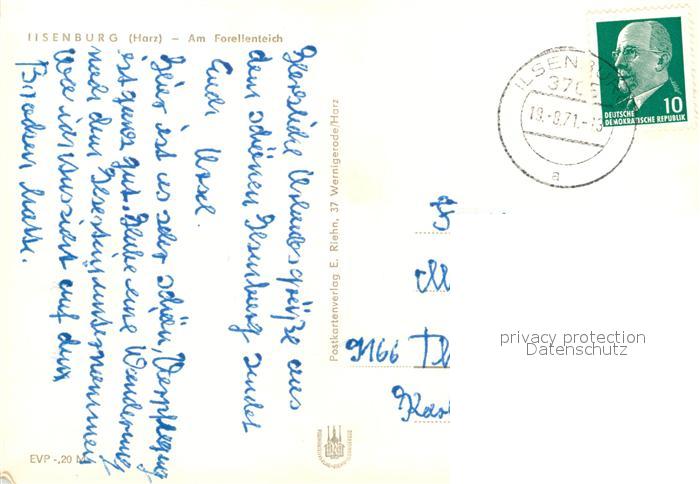 ILSENBURG (Harz) – Am Forellenteich
Herzliche Urlaubsgrüße aus
dem schönen Ilsenburg sendet
Euch Ursel.
Hier ist es sehr schön, Verpflegung
ist ganz gut. Habe eine Wanderung
nach dem unternommen
von wo aus ich Sicht auf den
Brocken hatte.
EVP -,20 M
Postkartenverlag E. Riehn, 37 Wernigerode/Harz
ILSENBURG
3705
19.-8.71.-
a
10
DEUTSCHE
DEMOKRATISCHE REPUBLIK
9166
privacy protection
Datenschutz